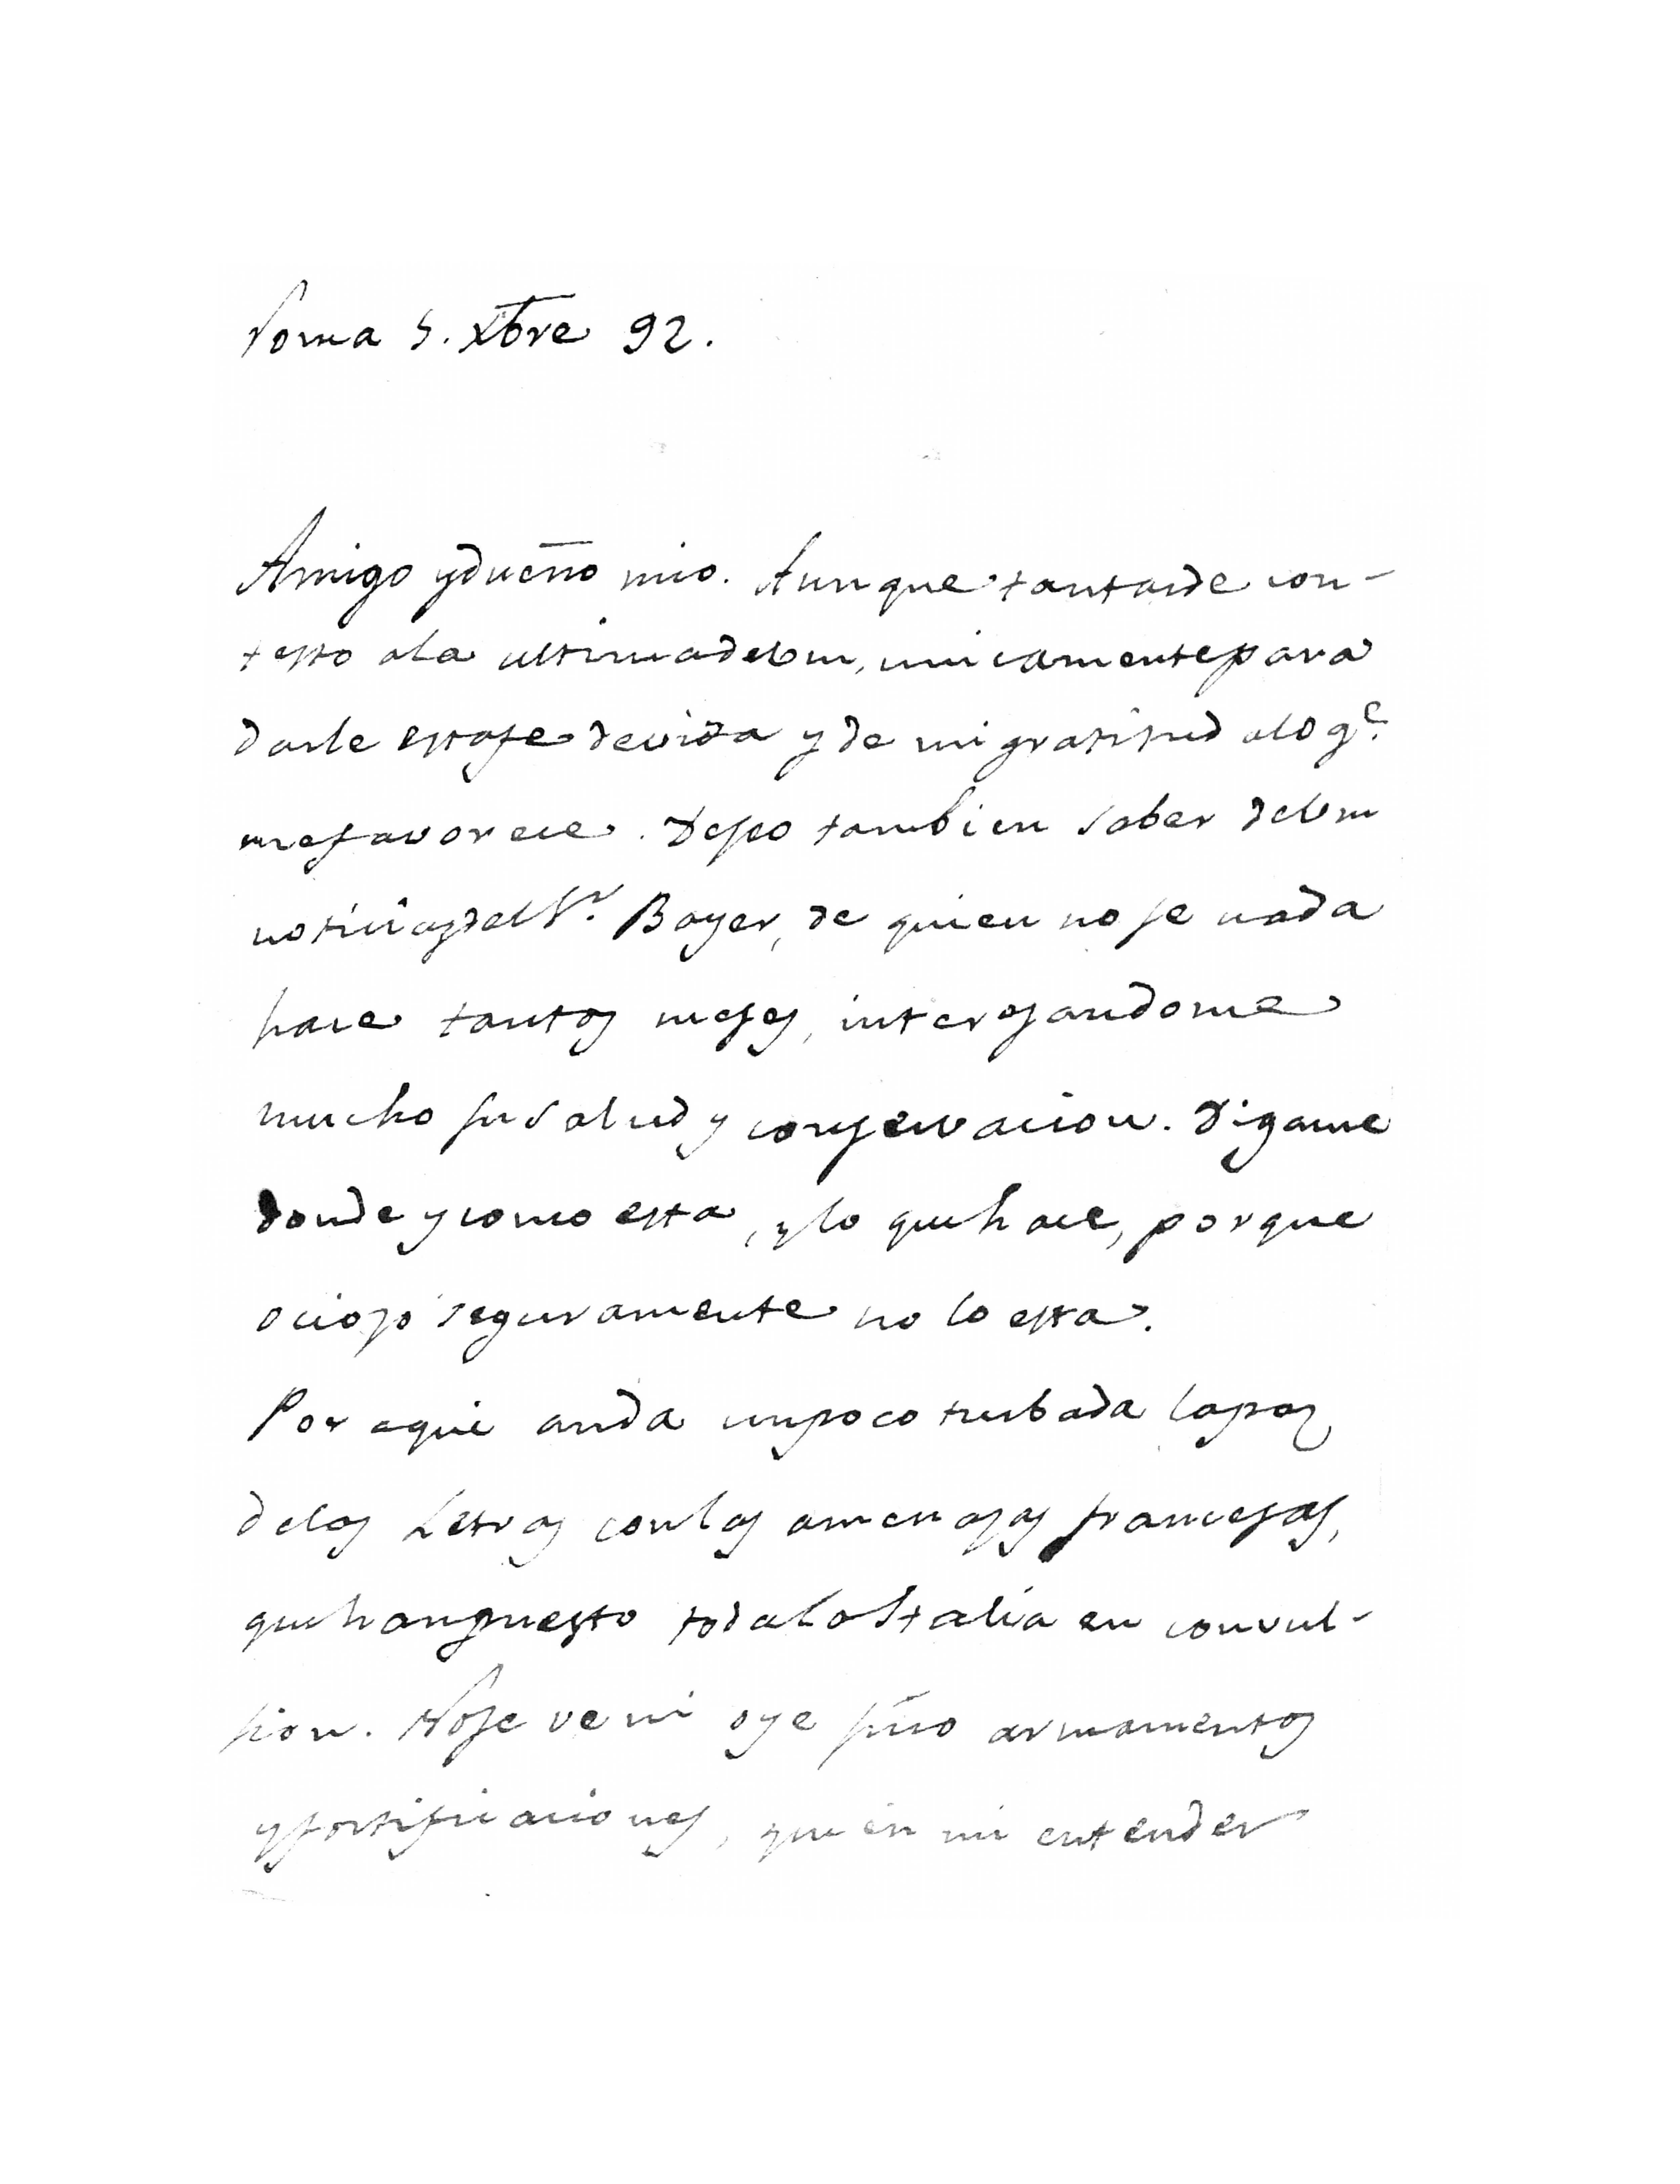 Roma 5. Xbre 92.
Amigo y dueño mio. Aunque tan tarde con-
testo a la ultima de Vm, unicamente para
darle esta fe de vida y de mi gratitud a lo q.e
me favorece. Deseo tambien saber de Vm
noticias del S.r Bayer, de quien no se nada
hace tantos meses, interesandome
mucho su salud y conservacion. Digame
donde y como esta, y lo que hace, porque
ocioso seguramente no lo esta.
Por aqui anda un poco turbada la paz
de las Letras con las amenazas francesas,
que han puesto toda la Italia en convul-
sion. No se ve ni oye sino armamentos
y fortificaciones, que en mi entender